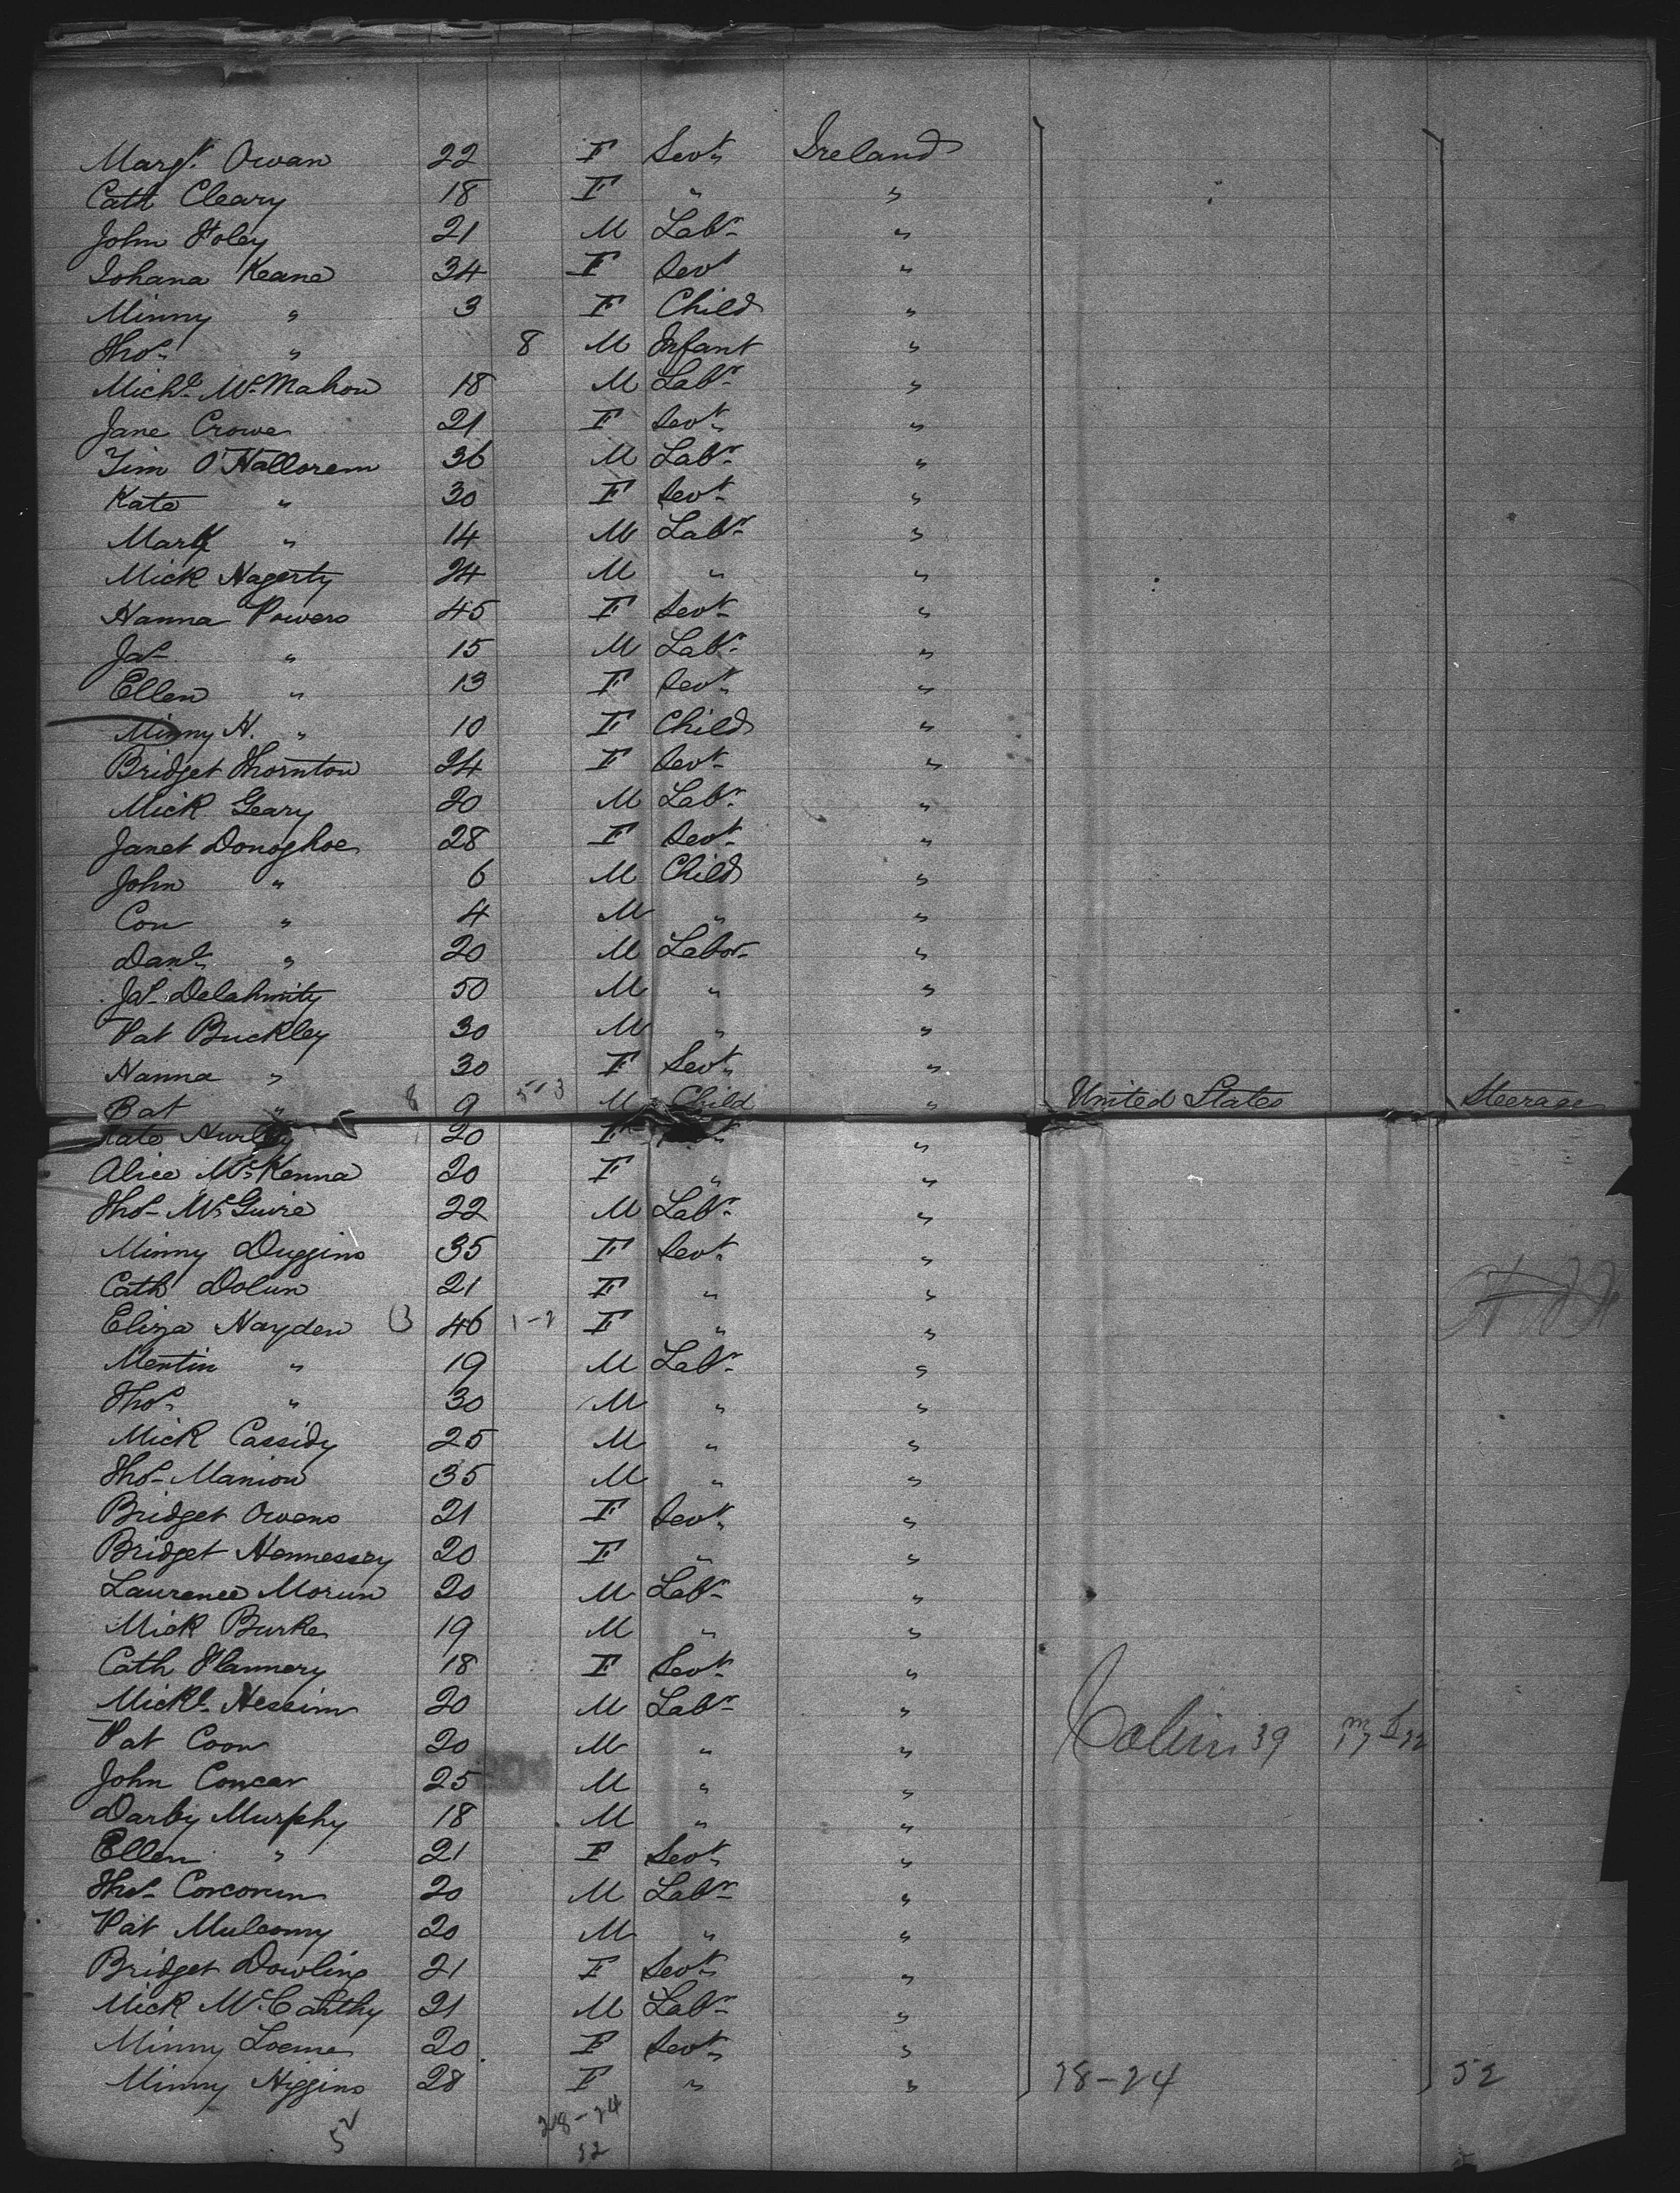 Margt. Owan 22 F Sevt. Ireland
Cath Cleary 18 F " "
John Foley 21 M Labr. "
Johana Keane 34 F Sevt "
Minny " 3 F Child "
Thos. " 8 M Infant "
Michl. McMahon 18 M Labr. "
Jane Crowe 21 F Sevt. "
Tim O'Hallorem 36 M Labr. "
Kate " 30 F Sevt. "
Mark " 14 M Labr. "
Mick Hagerty 24 M " "
Hanna Powers 45 F Sevt. "
Jas. " 15 M Labr. "
Ellen " 13 F Sevt. "
Minny H. " 10 F Child "
Bridget Thornton 24 F Sevt. "
Mick Geary 20 M Labr. "
Janet Donoghoe 28 F Sevt. "
John " 6 M Child "
Con " 4 M " "
Danl. " 20 M Labor. "
Jas. Delahunty 50 M " "
Pat Buckley 30 M " "
Hanna " 30 F Sevt. "
Bat " 8 9 5-3 M Child " United States Steerage
Kate Hurley 20 F "
Alice McKenna 20 F " "
Thos. McGuire 22 M Labr. "
Minny Duggins 35 F Sevt. "
Cath Dolun 21 F " "
Eliza Hayden 46 1-2 F " "
Mentin " 19 M Labr. "
Thos. " 30 M " "
Mick Cassidy 25 M " "
Thos. Manion 35 M " "
Bridget Owens 21 F Sevt. "
Bridget Hennessey 20 F " "
Laurence Morun 20 M Labr. "
Mick Burke 19 M " "
Cath Flannery 18 F Sevt. "
Mickl. Hessim 20 M Labr. "
Pat Coon 20 M " " 39
John Concar 25 M " "
Darby Murphy 18 M " "
Ellen " 21 F Sevt. "
Thos. Corcorun 20 M Labr. "
Pat Mulcomy 20 M " "
Bridget Dowling 21 F Sevt. "
Mick McCarthy 21 M Labr. "
Minny Loeme 20 F Sevt. "
Minny Higgins 28 F " " 28-24 52
52 28-24
52